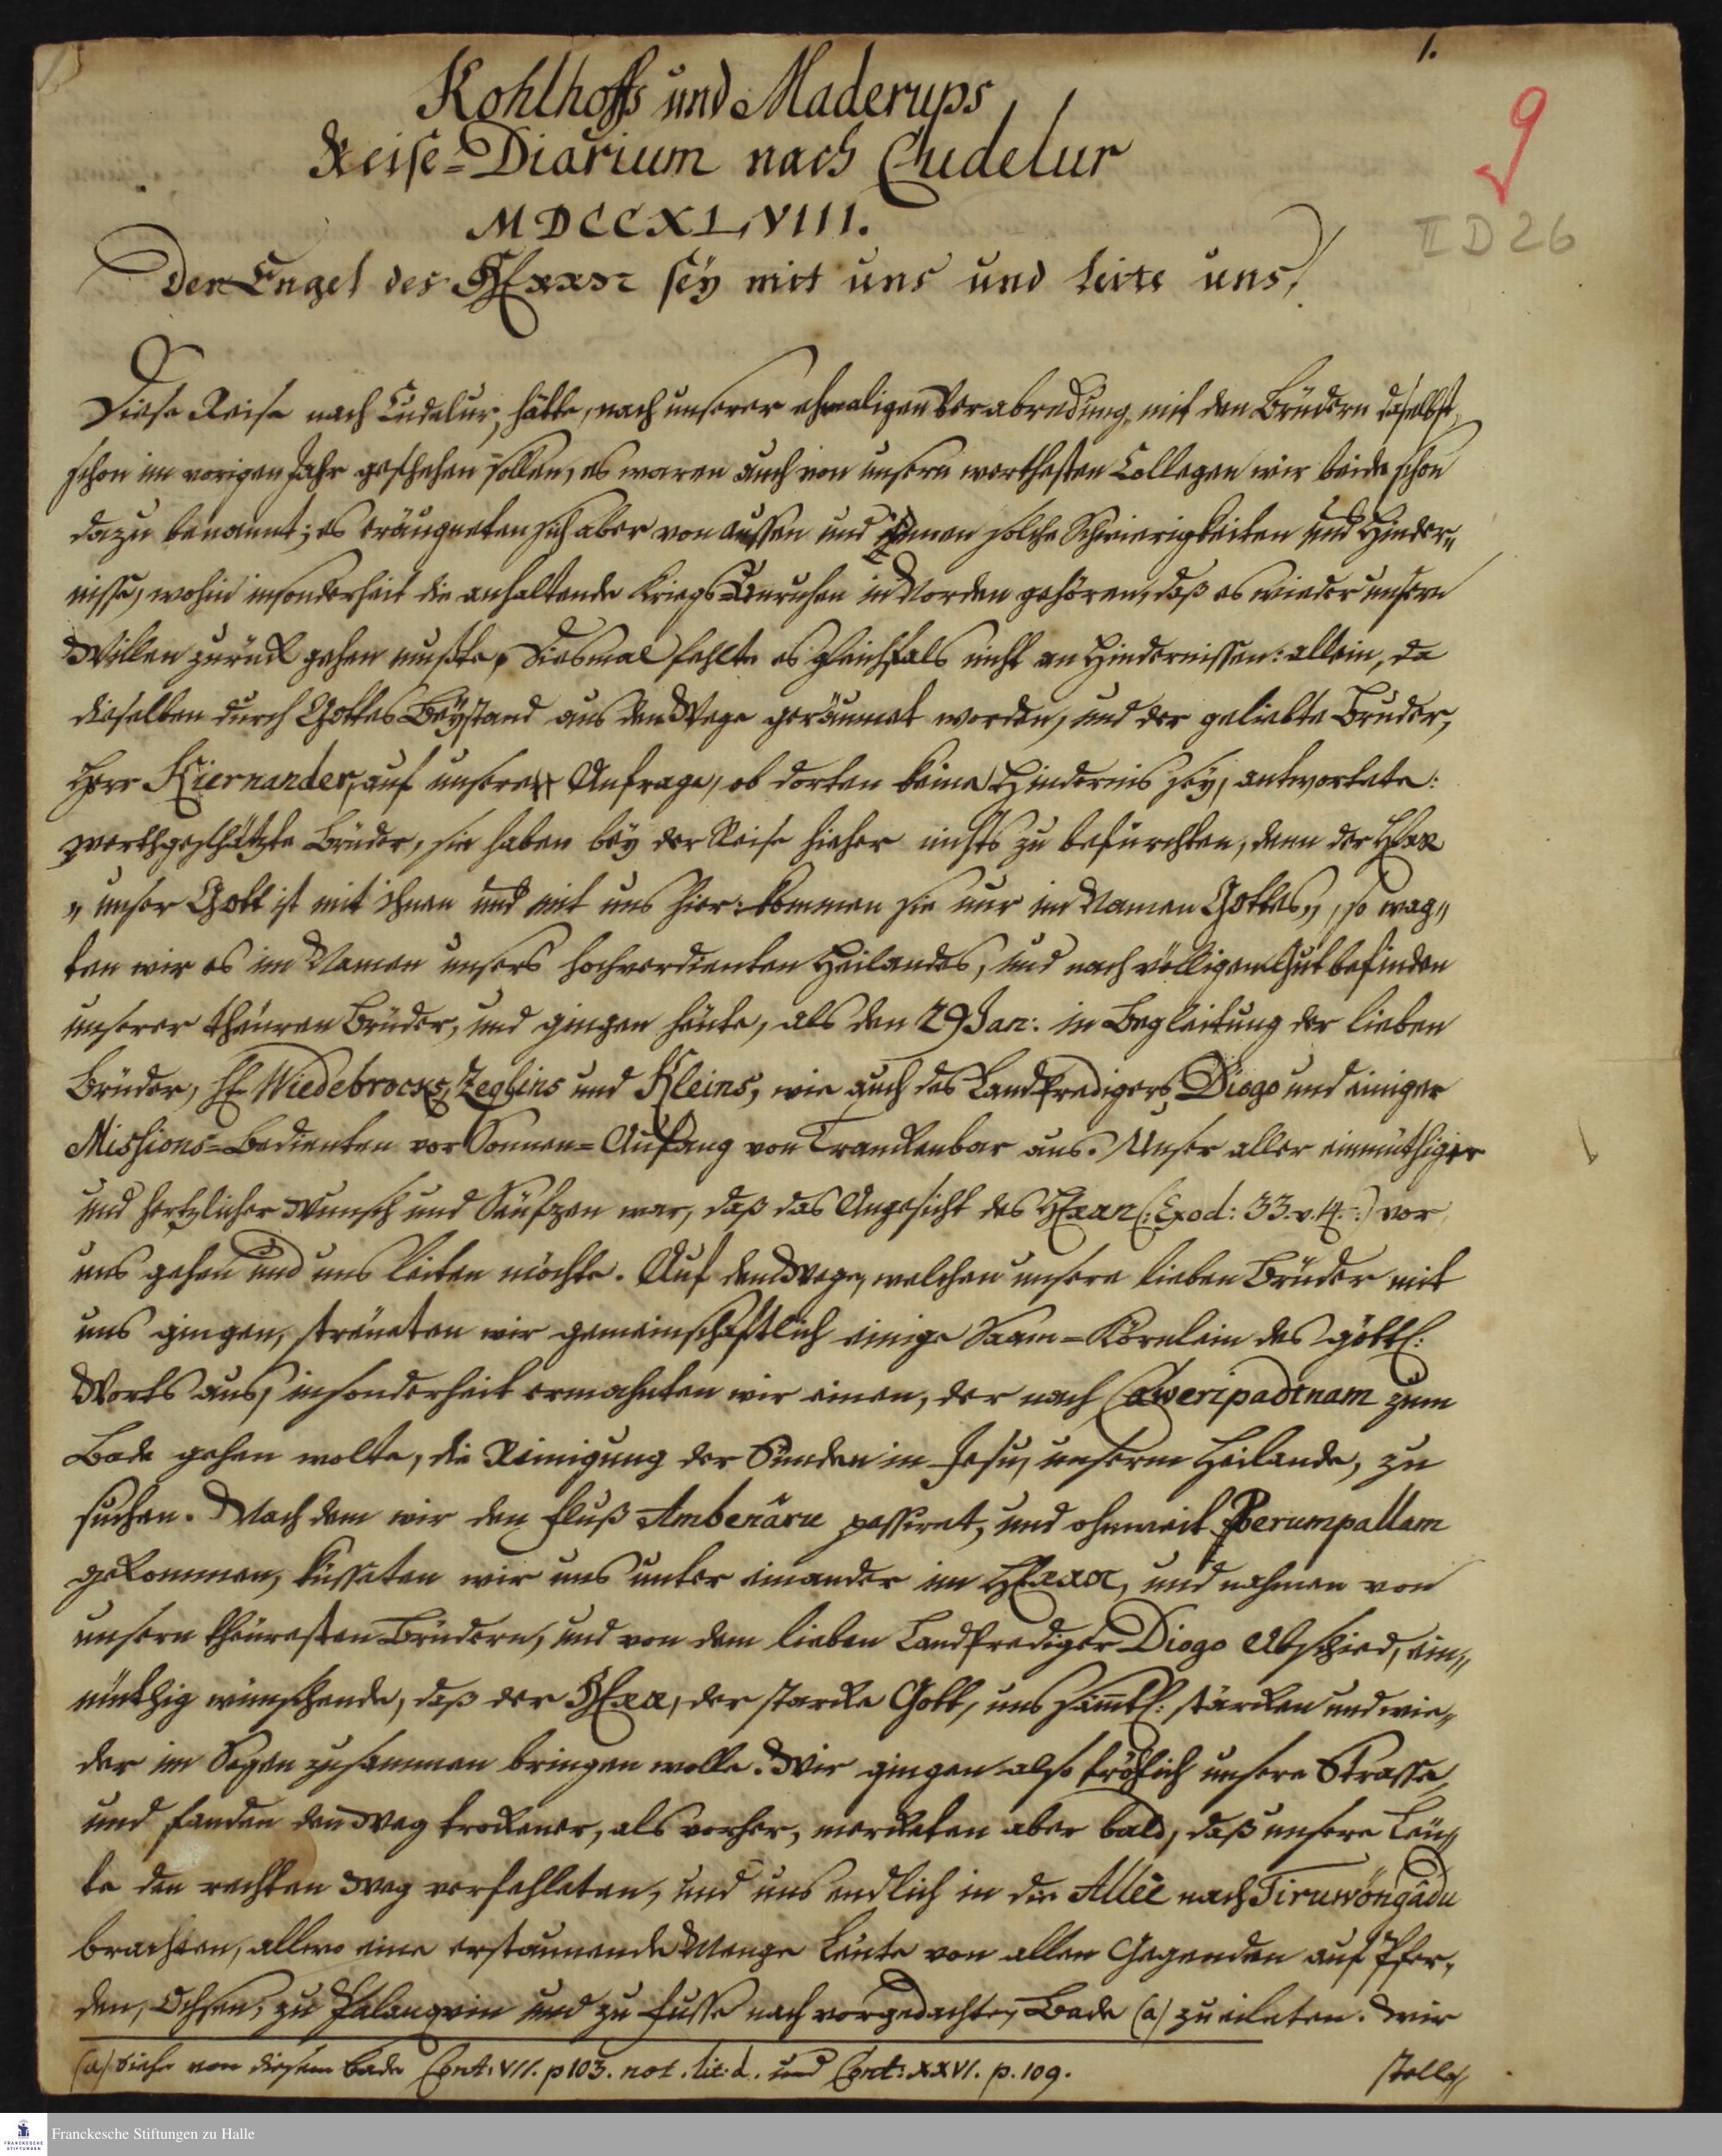 1.
Kohlhoffs und Maderups
Reise=Diarium nach Cudelur
MDCCXLVIII.
9
II D 26
Der Engel des HErrn seÿ mit uns und leite uns!
Diese Reise nach Cudelur, hätte, nach unserer ehmaligen Verabredung, mit den Brüdern daselbst,
schon im vorigen Jahr geschehen sollen, es waren auch von unsern werthesten Collegen wir beide schon
dazu benannt; es eräugneten sich aber von aussen und innen solche Schwierigkeiten und Hinder„
nisse, wohin insonderheit die anhaltende Kriegs-Unruhen in Norden gehören, daß es wieder unsern
Willen zurück gehen mußte. Diesmal fehlte es gleichfals nicht an Hindernissen: allein, da
dieselben durch Gottes Beÿstand aus dem Wege geräumet worden, und der geliebte Bruder,
Herr Kiernander, auf unsere Anfrage, ob dorten keine Hindernis seÿ, antwortete:
werthgeschätzte Brüder, sie haben beÿ der Reise hieher nichts zu befürchten, denn der HErr
„ unser Gott ist mit ihnen und mit uns hier: kommen sie nur im Namen Gottes„, so wag„
ten wir es im Namen unsers hochverdienten Heilandes, und nach völligem Gutbefinden
unserer theuren Brüder, und gingen heute, als den 29 Jan: in Begleitung der lieben
Brüder, H. Wiedebrocks, Zeglins und Kleins, wie auch des Landpredigers Diogo und einiger
Missions=Bedienten vor Sonnen=Aufgang von Tranckenbar aus. Unser aller einmüthiger
und hertzlicher Wunsch und Seufzen war, daß das Angesicht des HErrn (: Exod: 33. v. 14. :) vor
uns gehen und uns leiten möchte. Auf dem Wege, welchen unsere lieben Brüder mit
uns gingen, streueten wir gemeinschaftlich einige Saam=Körnlein des göttl:
Worts aus, insonderheit ermahnten wir einen, der nach Caweripadtnam zum
Bade gehen wolte, die Reinigung der Sünden in Jesu, unserm Heilande, zu
suchen. Nach dem wir den Fluß Ambenâru passiret, und ohnweit Perumpallam
gekommen, küsseten wir uns unter einander im HErrn, und nahmen von
unsern theuresten Brüdern, und von dem lieben Landprediger Diogo Abschied, ein„
müthig wünschende, daß der HErr, der starcke Gott, uns sämtl: stärcken und wie„
der im Segen zusammen bringen wolle. Wir gingen also frölich unsere Strasse,
und fanden den Weg trockener, als vorher, merckten aber bald, daß unsere Leu„
te den rechten Weg verfehleten, und uns endlich in die Allée nach Tiruwöngâdu
brachten, allwo eine erstaunende Menge Leute von allen Gegenden auf Pfer„
den, Ochsen, zu Palanqvin und zu Fusse nach vorgedachten Bade (a) zu eileten. Wir
(a) Siehe von diesem Bade Cont: VII. p 103. not. lit: d. und Cont: XXVI. p. 109.
stelle„
Franckesche Stiftungen zu Halle